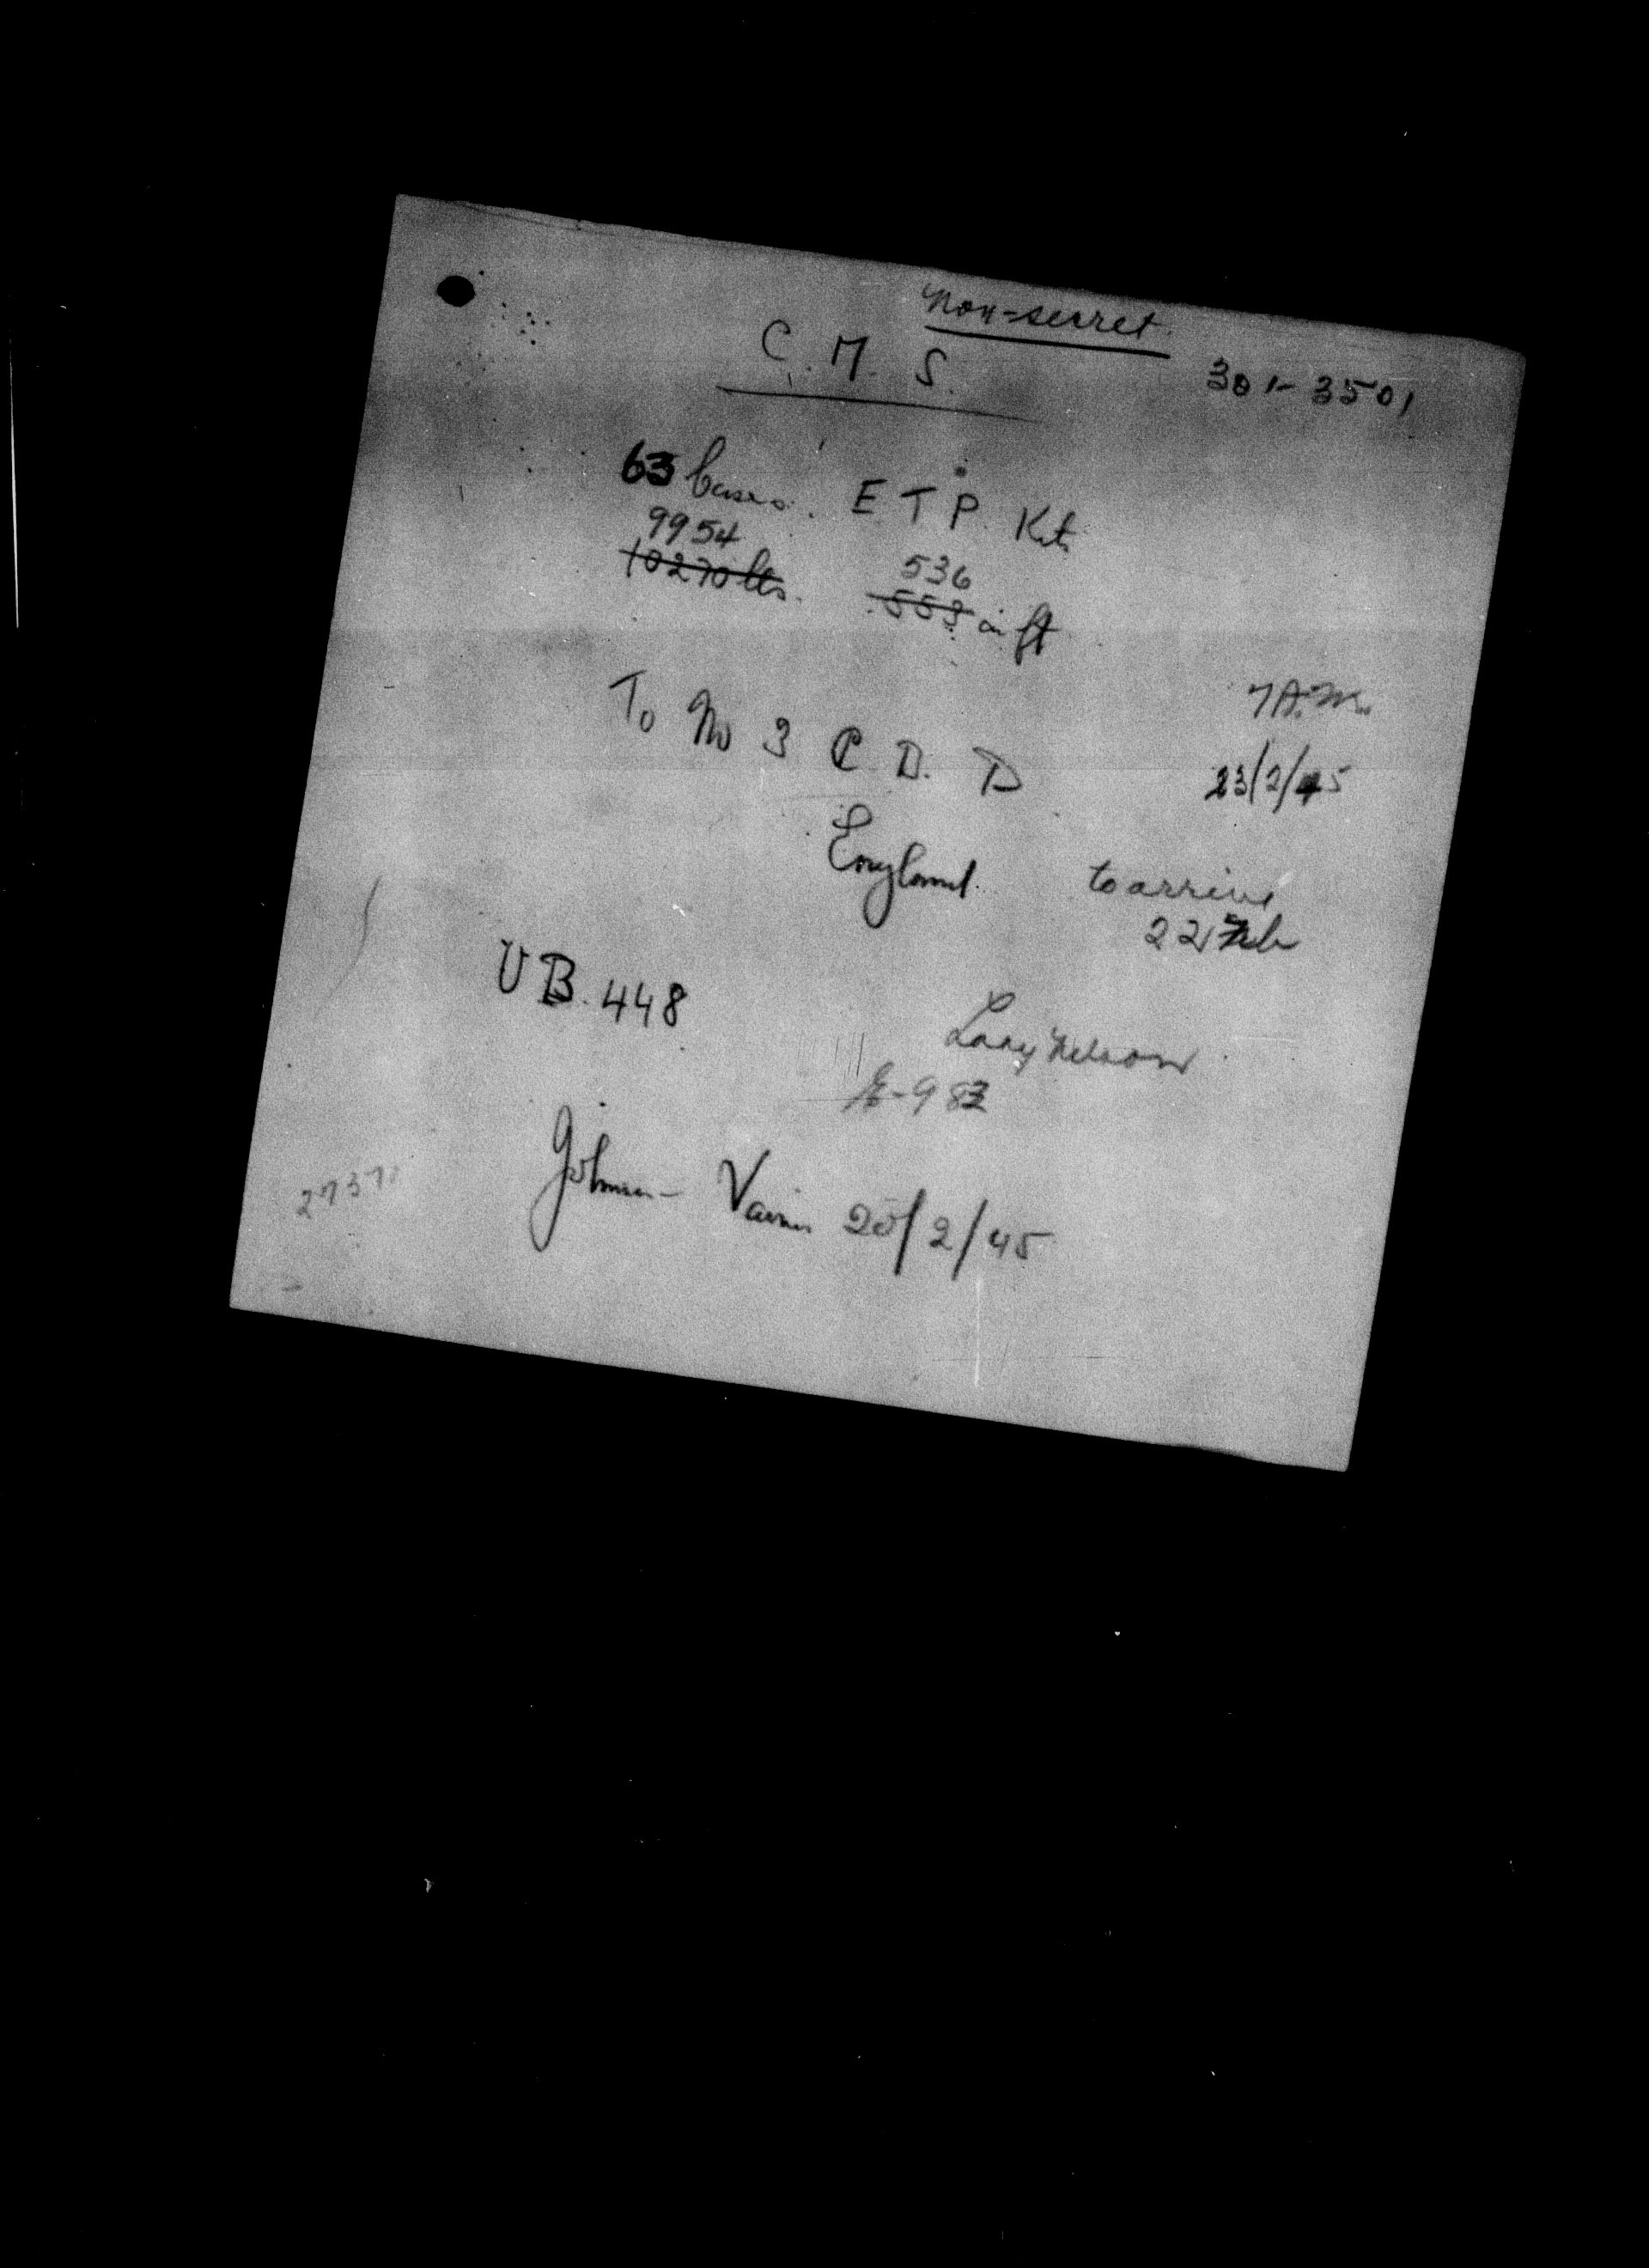 Non-secret
C. M. S. 301-3501
63 Cases. E T P Kit
9954 536
10270 lbs. 553 cu ft
7 A.M.
To No 3 C. D. D 23/2/45
England. to arrive
22 Feb
UB. 448
Lady Nelson
983
Vaism 20/2/45
2737